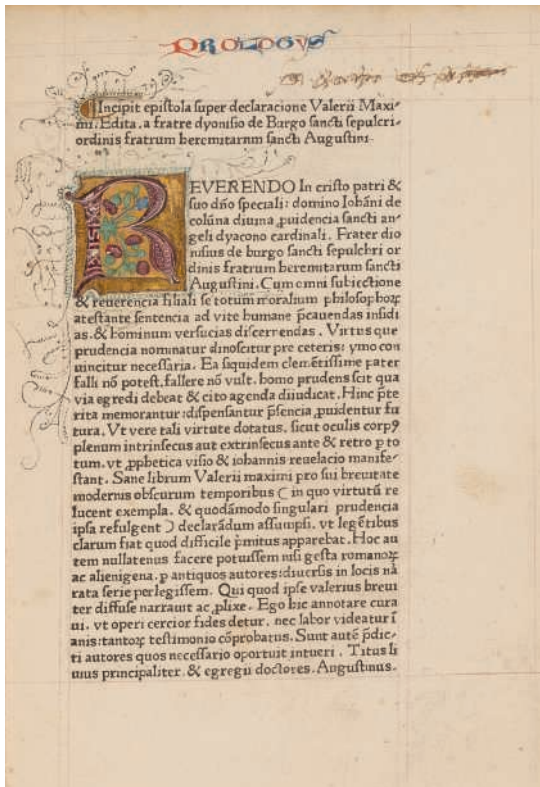 PROLOGVS
Incipit epistola super declaracione Valerii Maxi-
mi. Edita . a fratre dyonisio de Burgo sancti sepulcri-
ordinis fratrum heremitarum sancti Augustini-
REVERENDO In cristo patri &
suo dño speciali: domino Iohãni de
colũna diuina ꝓuidencia sancti an-
geli dyacono cardinali. Frater dio
nisius de burgo sancti sepulchri or
dinis fratrum heremitarum sancti
Augustini. Cum omni subiectione
& reuerencia filiali se totum moralium philosophoꝝ
atestante sentencia ad vite humane p̃cauendas insidi
as. & hominum versucias discerrendas . Virtus que
prudencia nominatur dinoscitur pre ceteris: ymo con
uincitur necessaria. Ea siquidem clemẽtissime pater
falli nõ potest. fallere nõ vult. homo prudens scit qua
via egredi debeat & cito agenda diiudicat. Hinc p̃te
rita memorantur: dispensantur p̃sencia, ꝓuidentur fu
tura. Vt vere tali virtute dotatus, sicut oculis corpꝰ
plenum intrinsecus aut extrinsecus ante & retro p to
tum. vt ꝓphetica visio & iohannis reuelacio manife-
stant. Sane librum Valerii maximi pro sui breuitate
modernis obscurum temporibus ( in quo virtutũ re
lucent exempla. & quodãmodo singulari prudencia
ipsa refulgent ) declarãdum assumpsi. vt legẽtibus
clarum fiat quod difficile p̃mitus apparebat. Hoc au
tem nullatenus facere potuissem nisi gesta romanoꝝ
ac alienigena. p antiquos autores: diuersis in locis nã
rata serie perlegissem. Qui quod ipse valerius breui
ter diffuse narrauit ac ꝓlixe. Ego hic annotare cura
ui. vt operi cercior fides detur. nec labor videatur ĩ
anis: tantoꝝ testimonio cõprobatus. Sunt autẽ p̃dic-
ti autores quos necessario oportuit intueri . Titus li
uius principaliter. & egregii doctores. Augustinus.